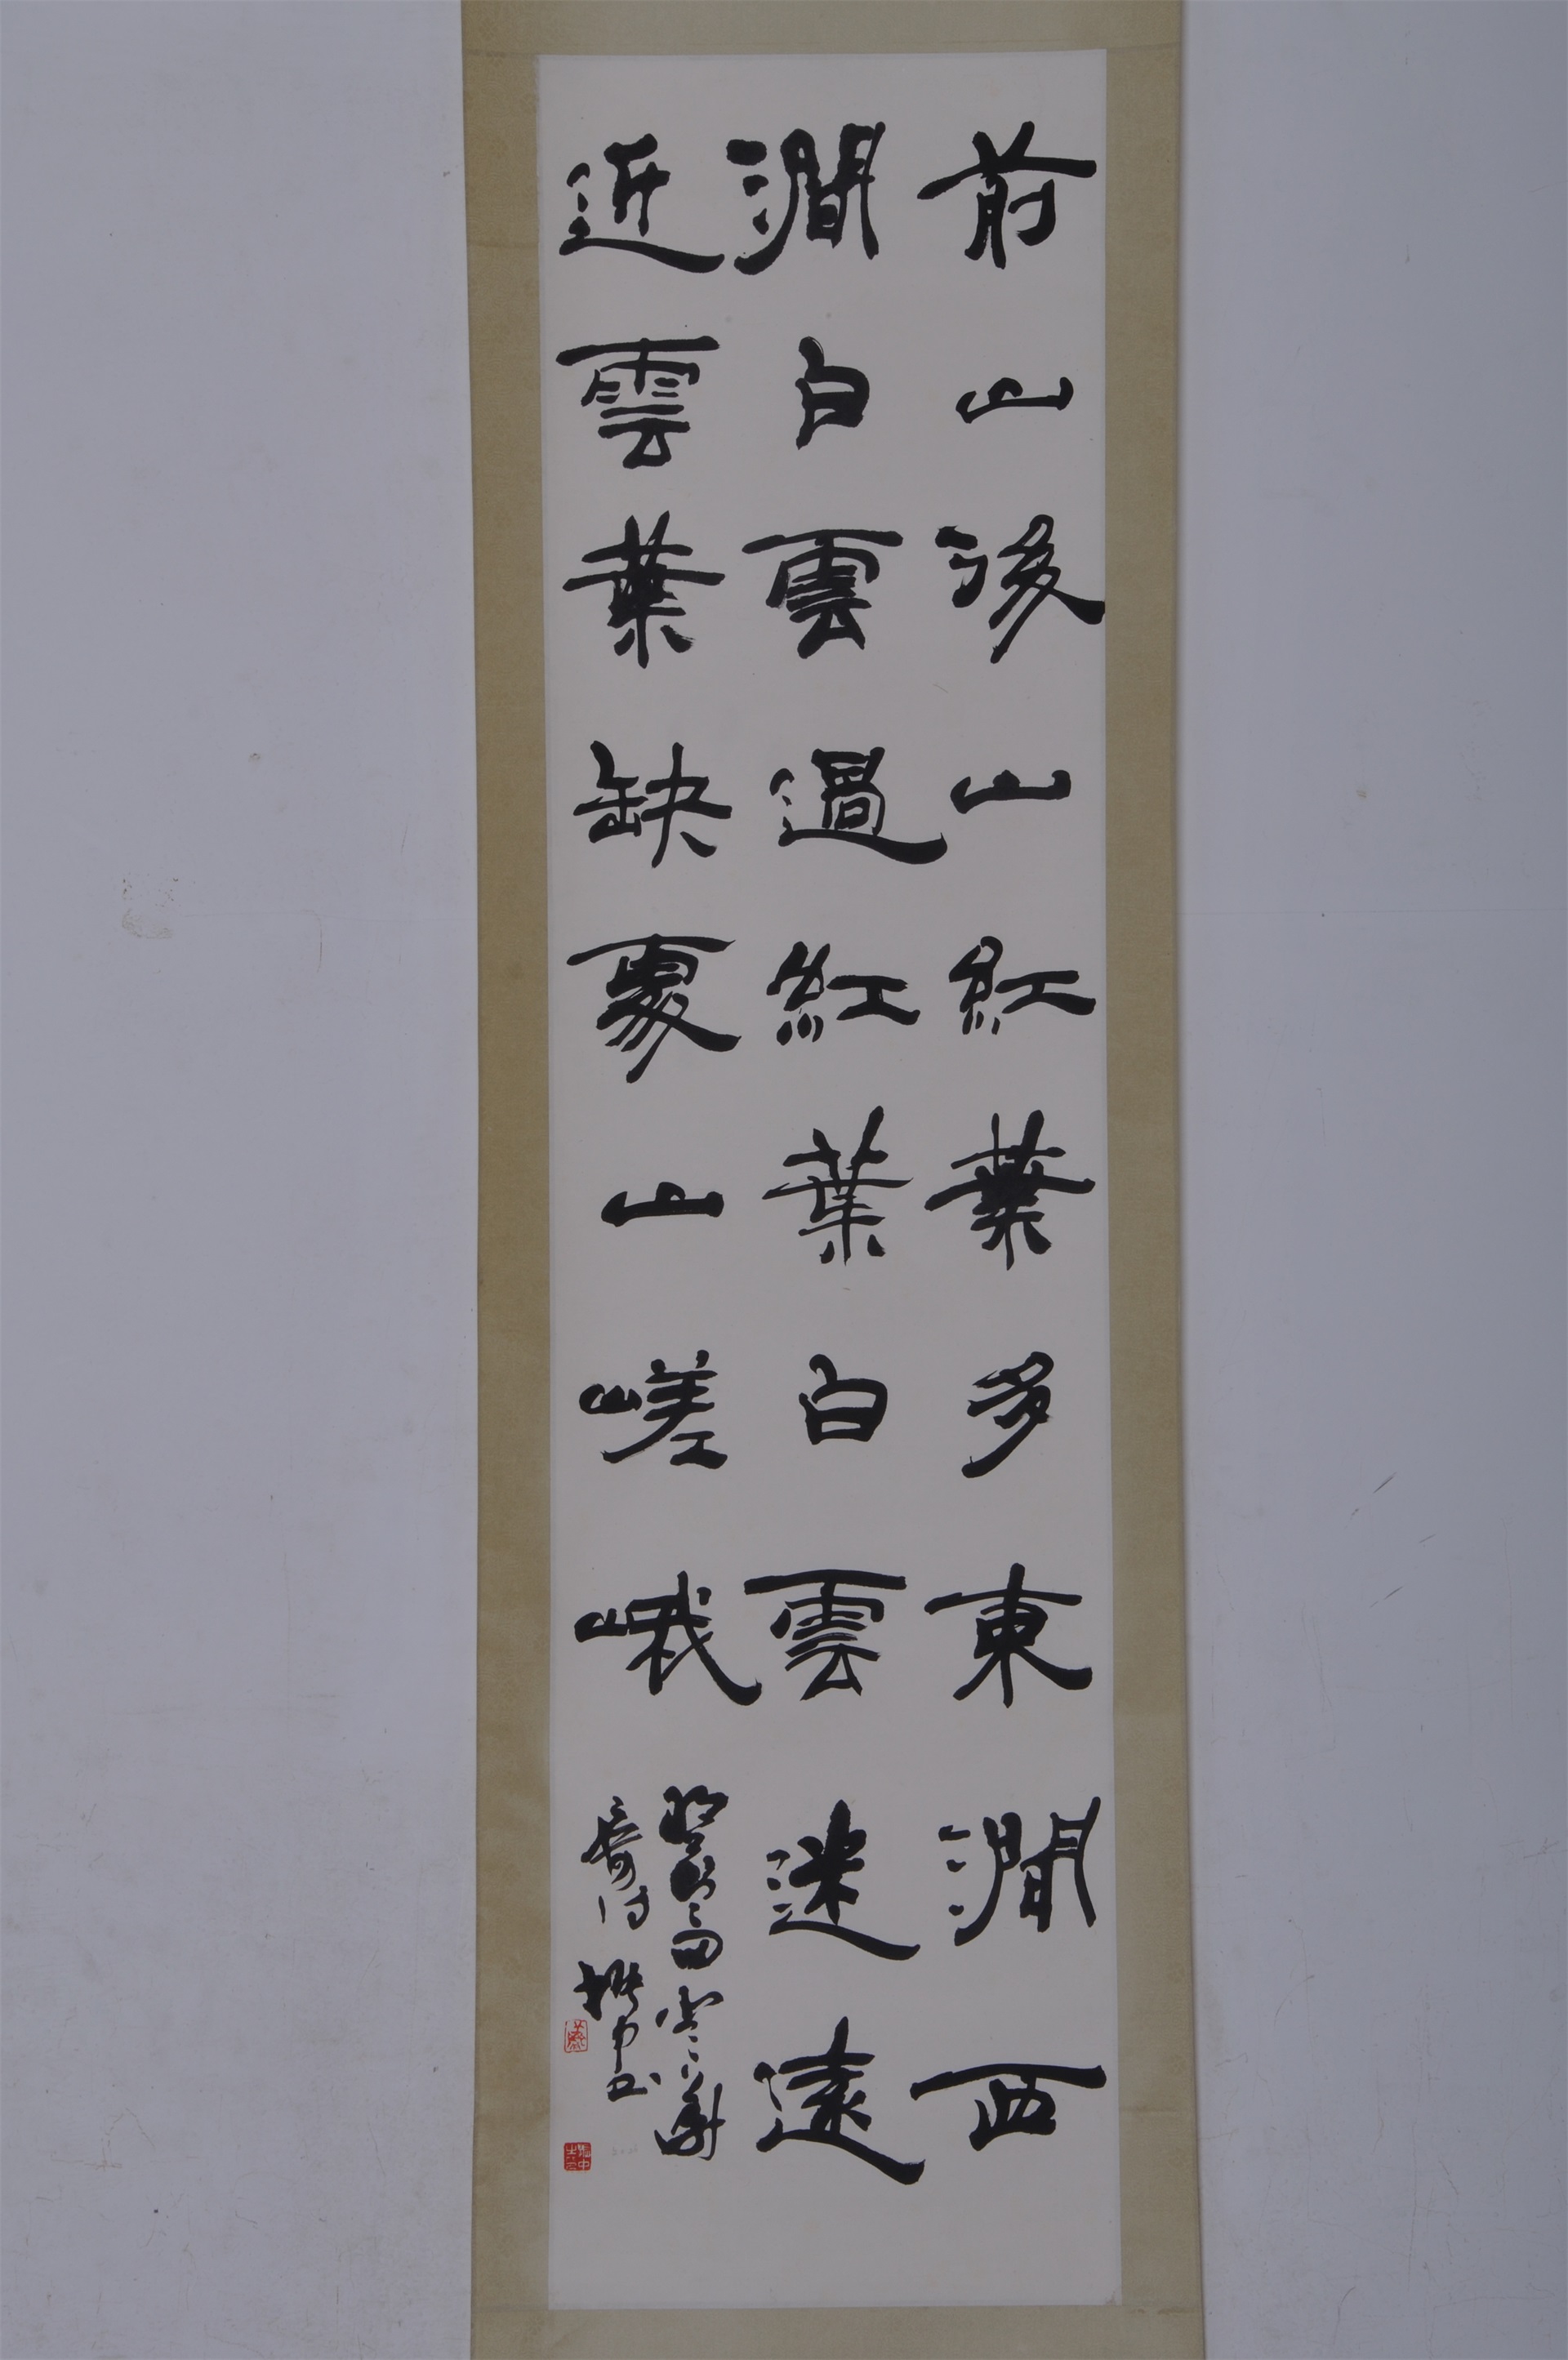 前山後山紅葉多東澗西
澗白雲過紅葉白雲迷遠
近雲葉缺處山嵯峨